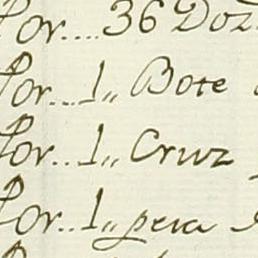 Por....36 Doz
Por...1,, Bote
Por...1,, Cruz
Por..1,, pera